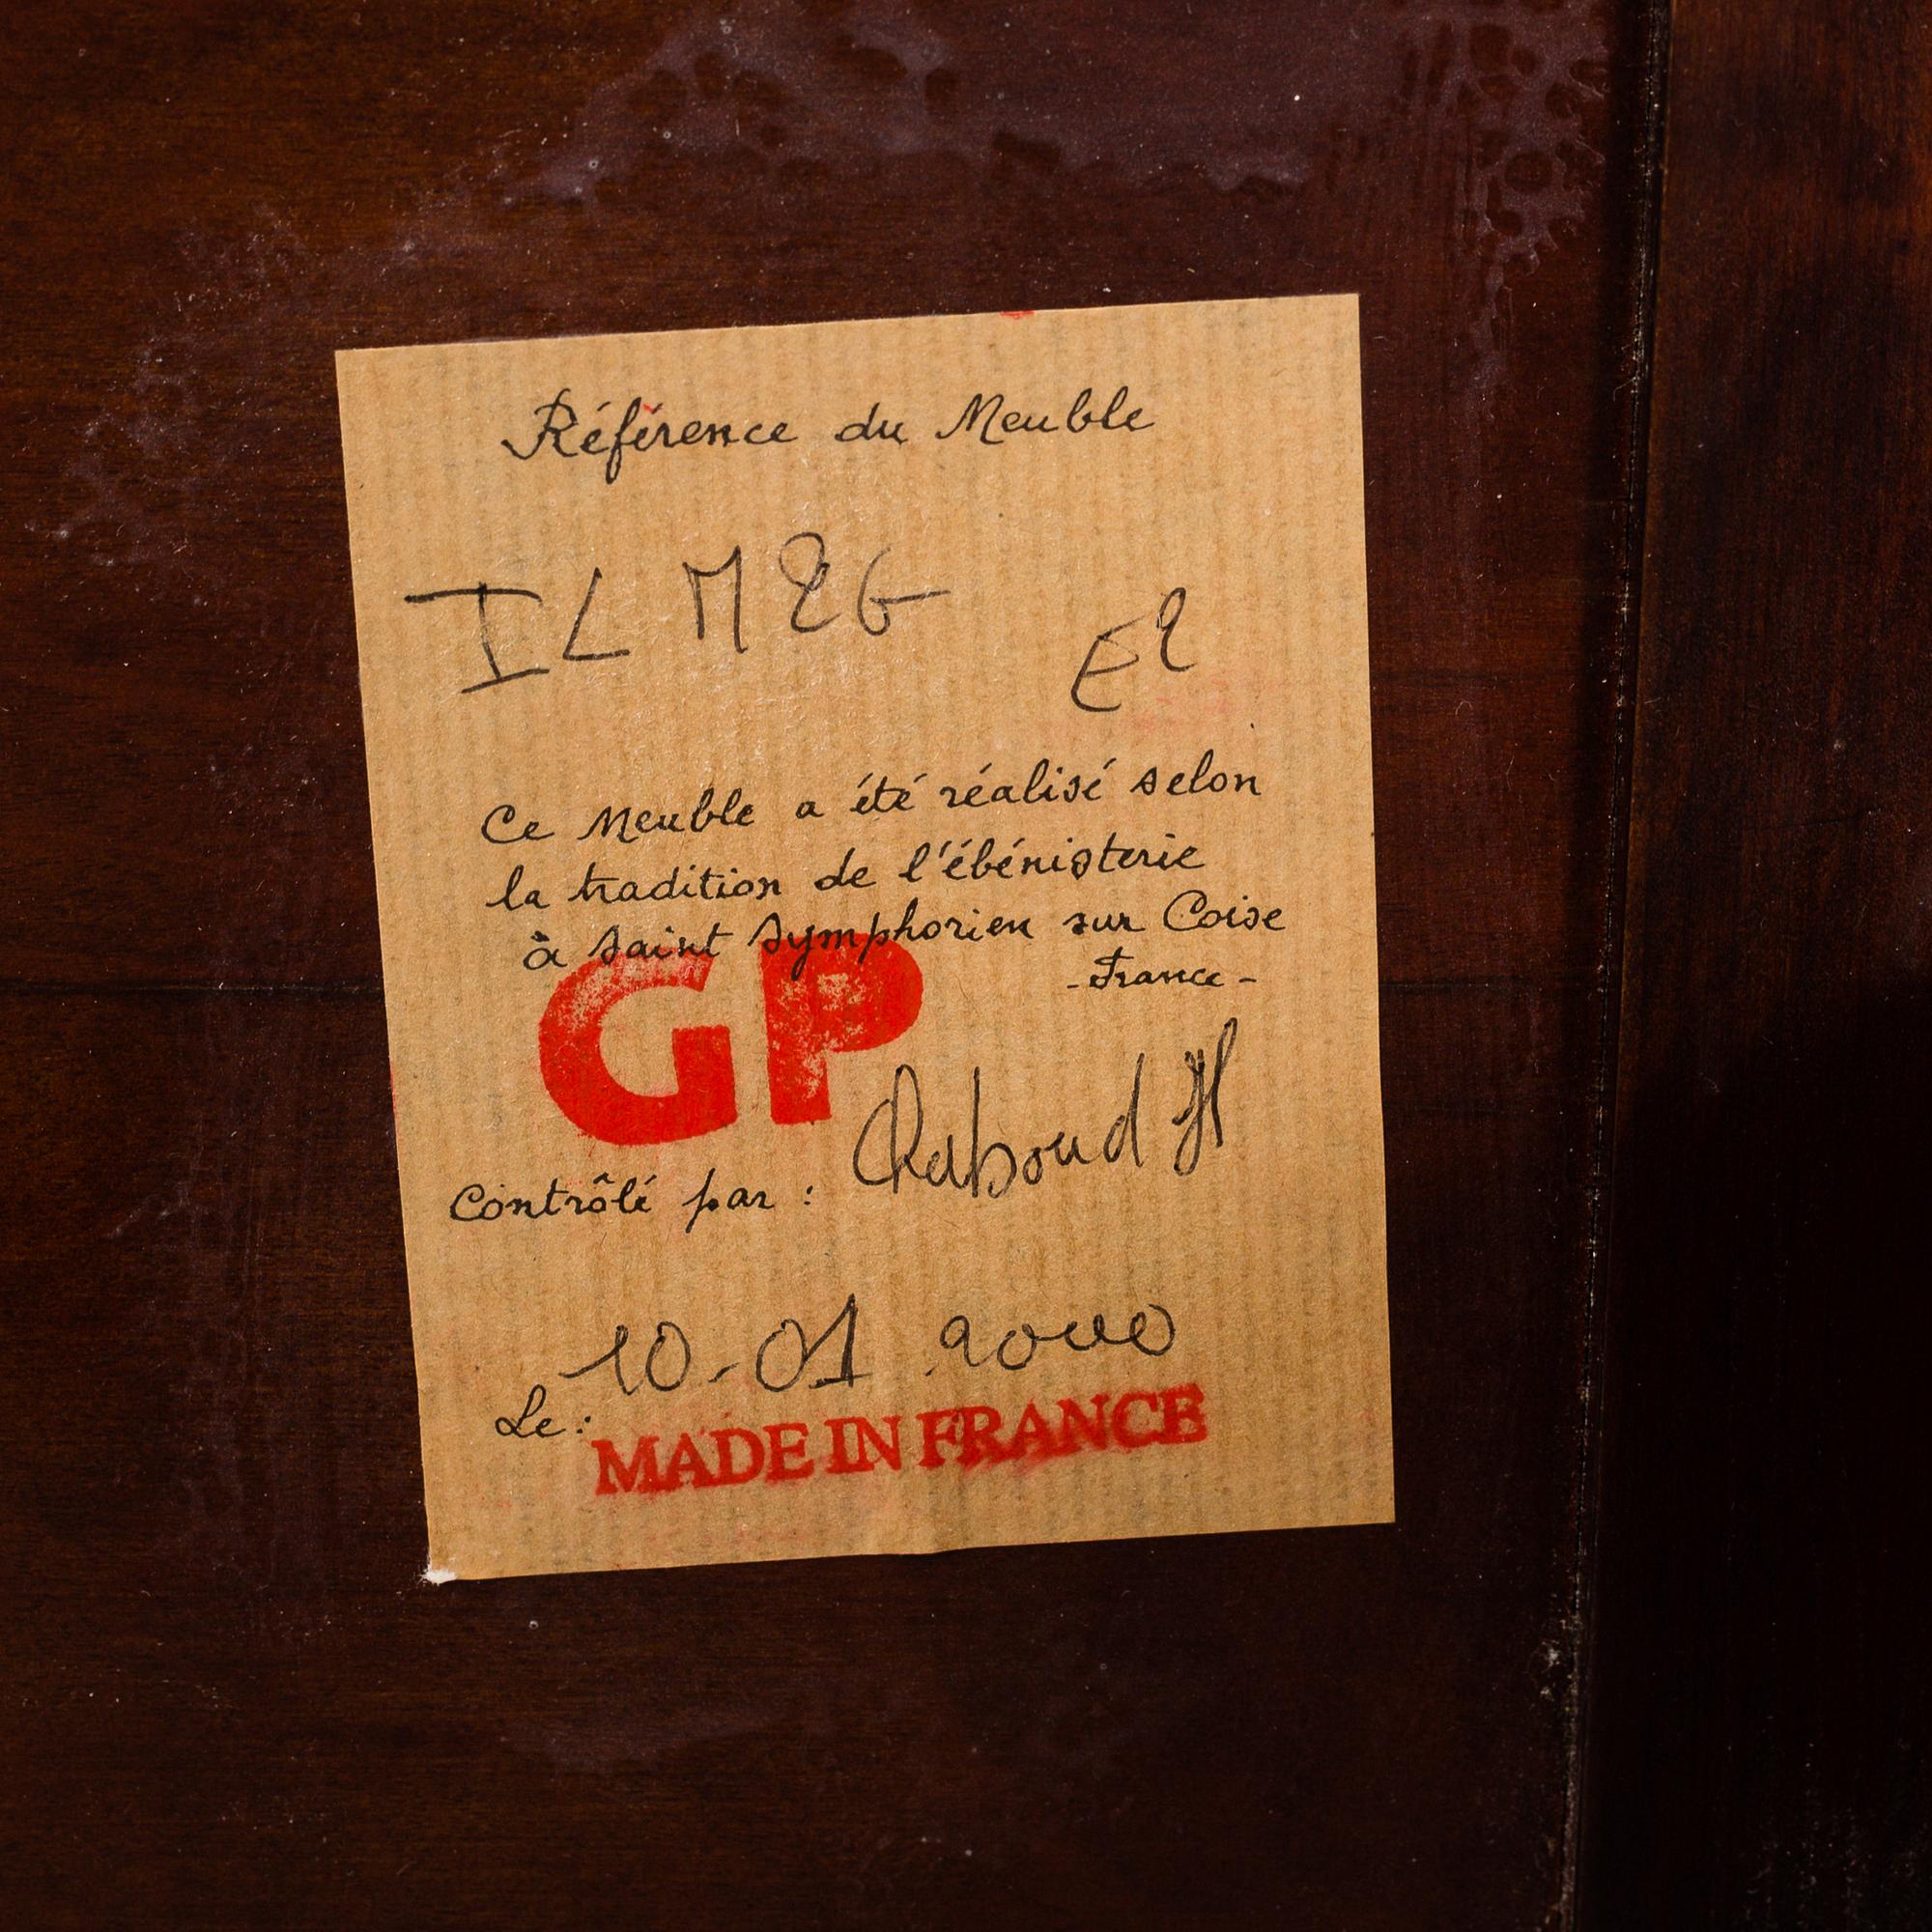 Référence du Meuble
IL M2G
E2
Ce Meuble a été réalisé selon
la tradition de l'ébénisterie
à saint symphorien sur Coise
- France -
GP
Contrôlé par :
Le : 10-01 2000
MADE IN FRANCE